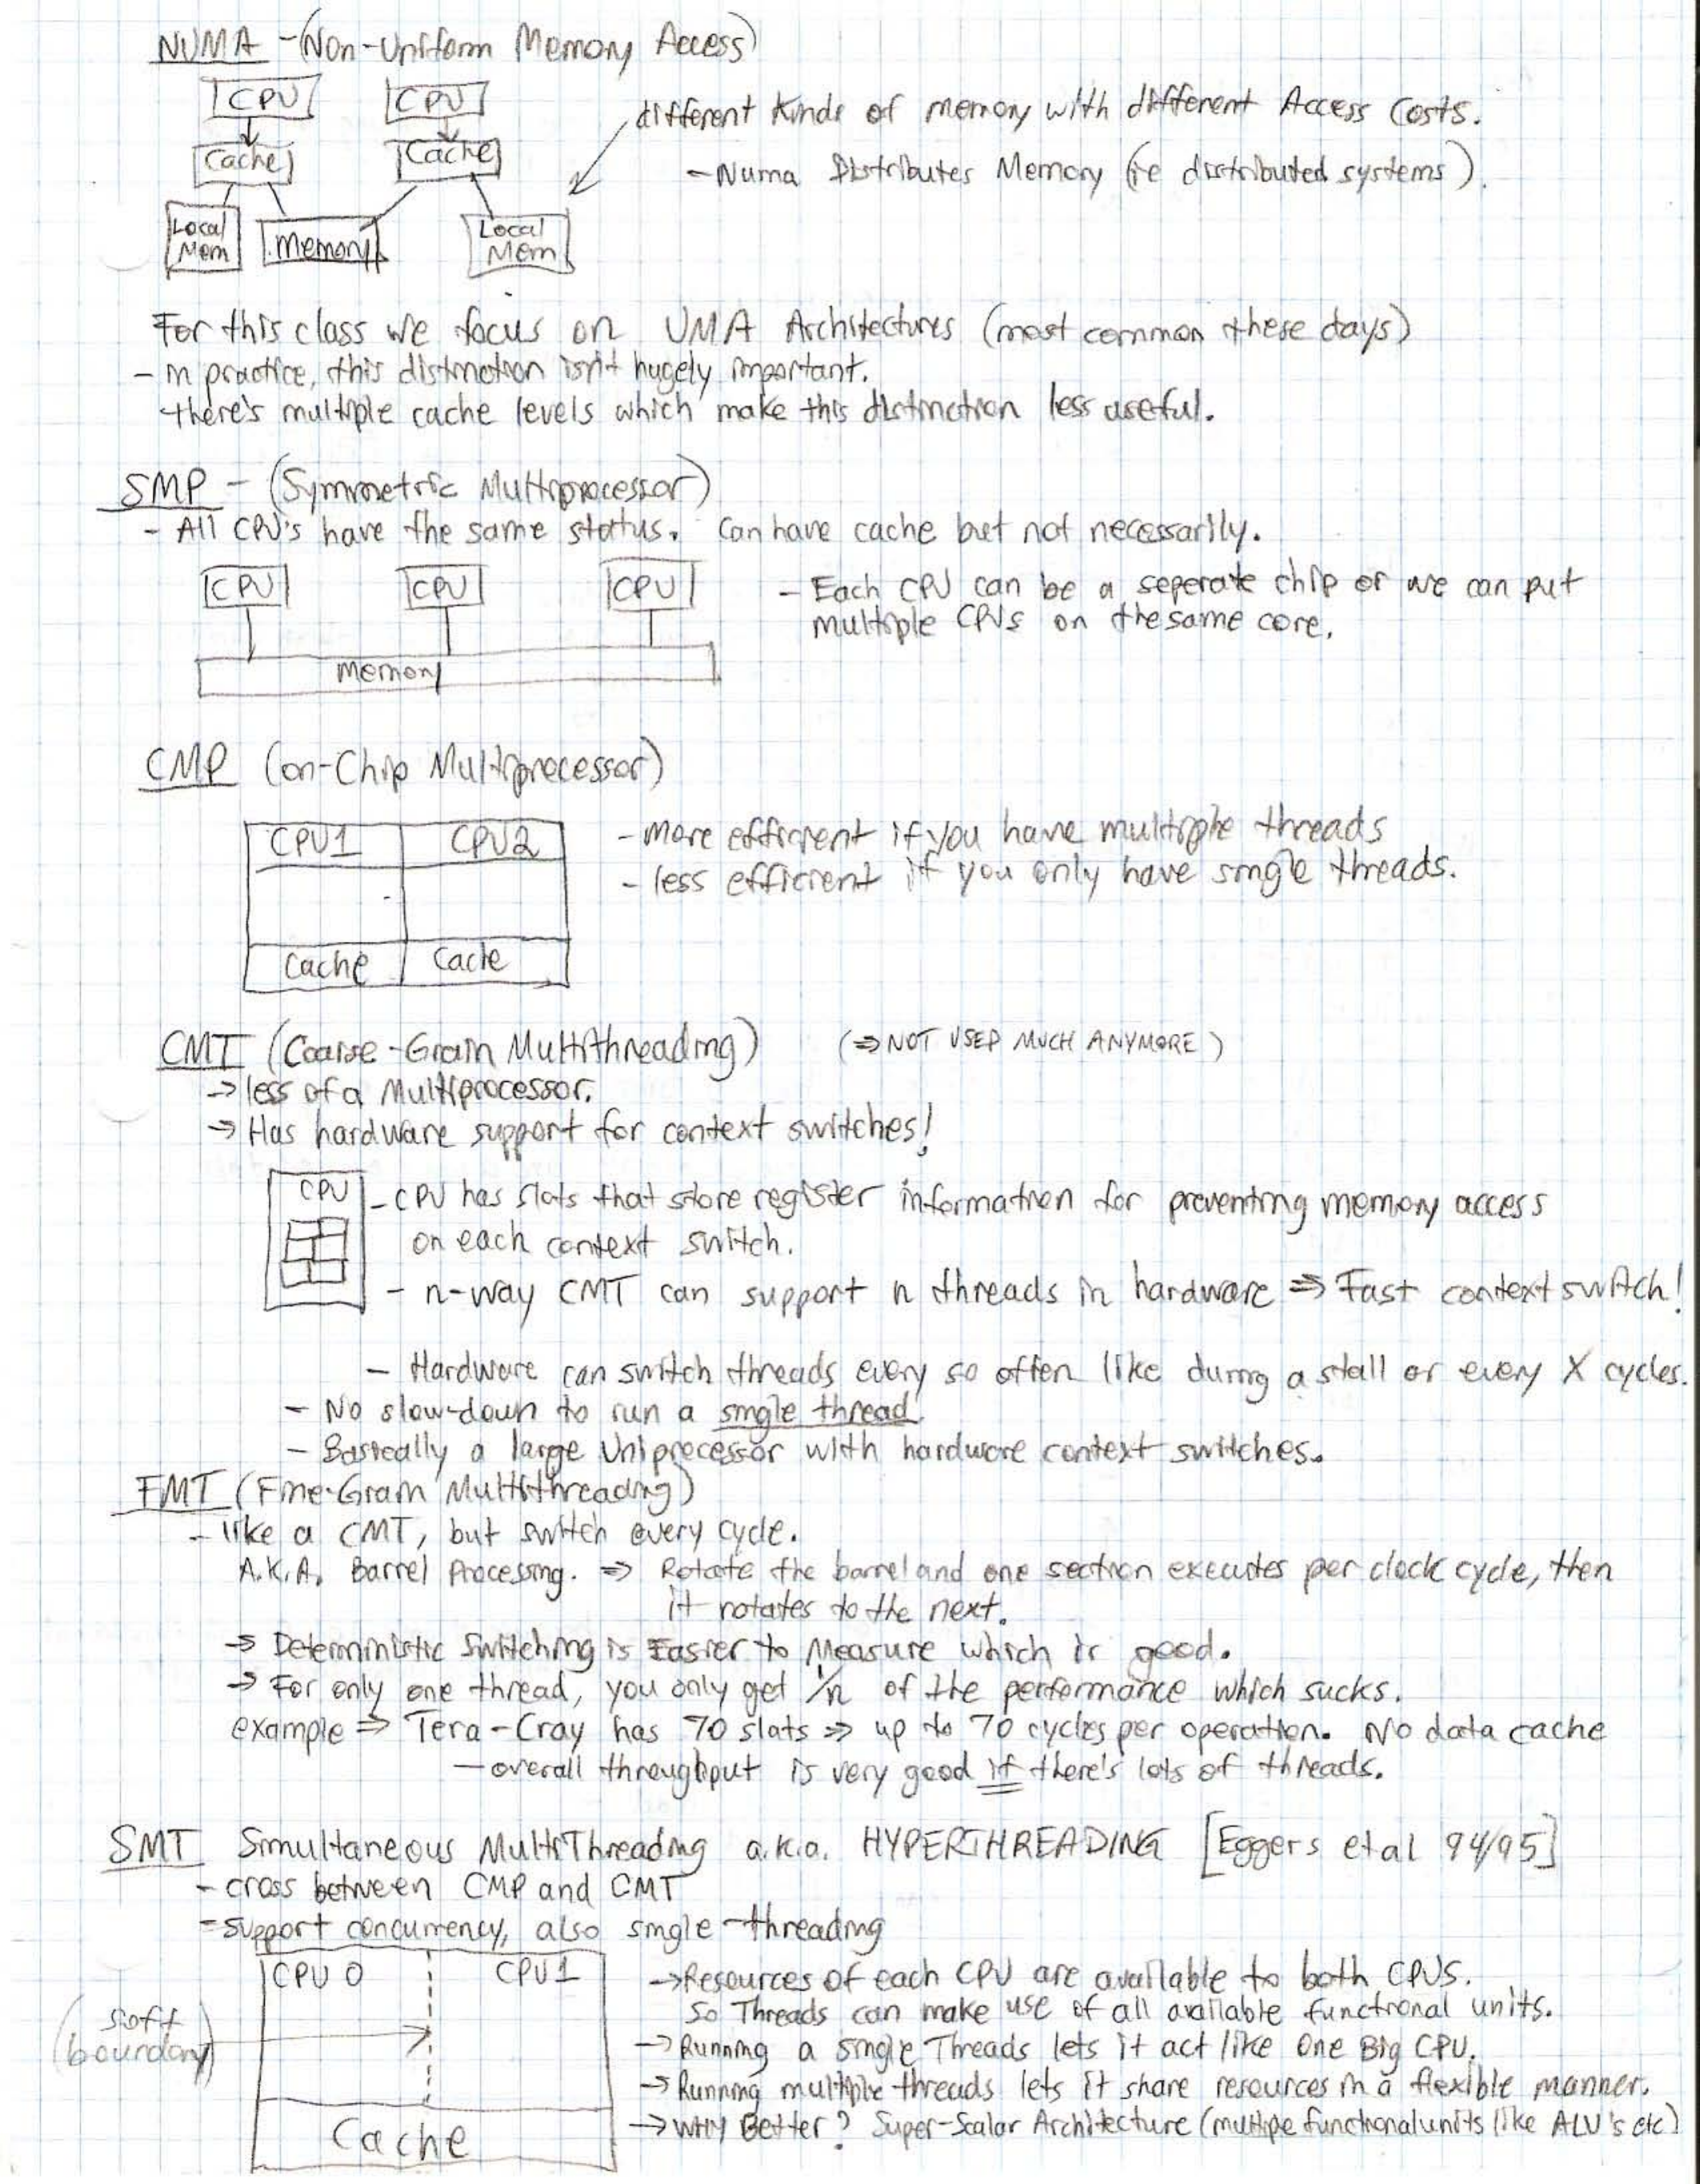 NUMA - (Non-Uniform Memory Access)
CPU CPU
different kinds of memory with different Access Costs.
Cache Cache
- Numa Distributes Memory (ie distributed systems).
Local Mem
Memory
Local Mem
For this class we focus on UMA Architectures (most common these days)
- in practice, this distinction isn't hugely important.
there's multiple cache levels which make this distinction less useful.
SMP - (Symmetric Multiprocessor)
- All CPU's have the same status. Can have cache but not necessarily.
CPU CPU CPU
- Each CPU can be a seperate chip or we can put
multiple CPUs on the same core.
Memory
CMP (on-Chip Multiprocessor)
CPU1 CPU2
- more efficient if you have multiple threads
- less efficient if you only have single threads.
Cache Cache
CMT (Coarse-Grain Multithreading) (⇒ NOT USED MUCH ANYMORE)
→ less of a Multiprocessor.
→ Has hardware support for context switches!
CPU
- CPU has slots that store register information for preventing memory access
on each context switch.
- n-way CMT can support n threads in hardware ⇒ Fast context switch!
- Hardware can switch threads every so often like during a stall or every X cycles.
- No slow-down to run a single thread.
- Basically a large Uniprocessor with hardware context switches.
FMT (Fine-Grain Multithreading)
- like a CMT, but switch every cycle.
A.K.A. Barrel Processing. ⇒ Rotate the barrel and one section executes per clock cycle, then
it rotates to the next.
→ Deterministic Switching is Easier to Measure which is good.
→ For only one thread, you only get 1/n of the performance which sucks.
example ⇒ Tera-Cray has 70 slots ⇒ up to 70 cycles per operation. No data cache
- overall throughput is very good if there's lots of threads.
SMT Simultaneous MultiThreading a.k.a. HYPERTHREADING [Eggers et al 94/95]
- cross between CMP and CMT
- support concurrency, also single-threading
CPU 0 CPU1
→ Resources of each CPU are available to both CPUS.
So Threads can make use of all available functional units.
(soft boundary)
→ Running a single Threads lets it act like One Big CPU.
→ Running multiple threads lets it share resources in a flexible manner.
→ WHY Better? Super-Scalar Architecture (multiple functional units like ALU's etc)
Cache